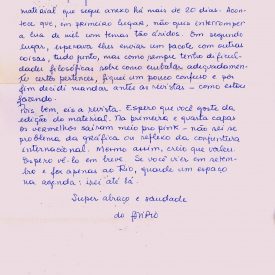 material que segue anexo há mais de 20 dias. Aconte-
ce que, em primeiro lugar, não quis interromper
a lua de mel com temas tão áridos. Em segundo
lugar, esperava lhes enviar um pacote com outras
coisas, tudo junto, mas como sempre tenho dificul-
dades filosóficas sobre como embalar adequadamen-
te certos pertences, fiquei um pouco confuso e por
fim decidi mandar antes as revistas - como estou
fazendo.
Pois bem, eis a revista. Espero que você goste da
edição do material. Na primeira e quarta capas
os vermelhos saíram meio pro pink - não sei se
problema da gráfica ou reflexo da conjuntura
internacional. Mesmo assim, creio que valeu.
Espero vê-lo em breve. Se você vier em setem-
bro e for apenas ao Rio, guarde um espaço
na agenda: irei até lá.
Super abraço e saudade
do